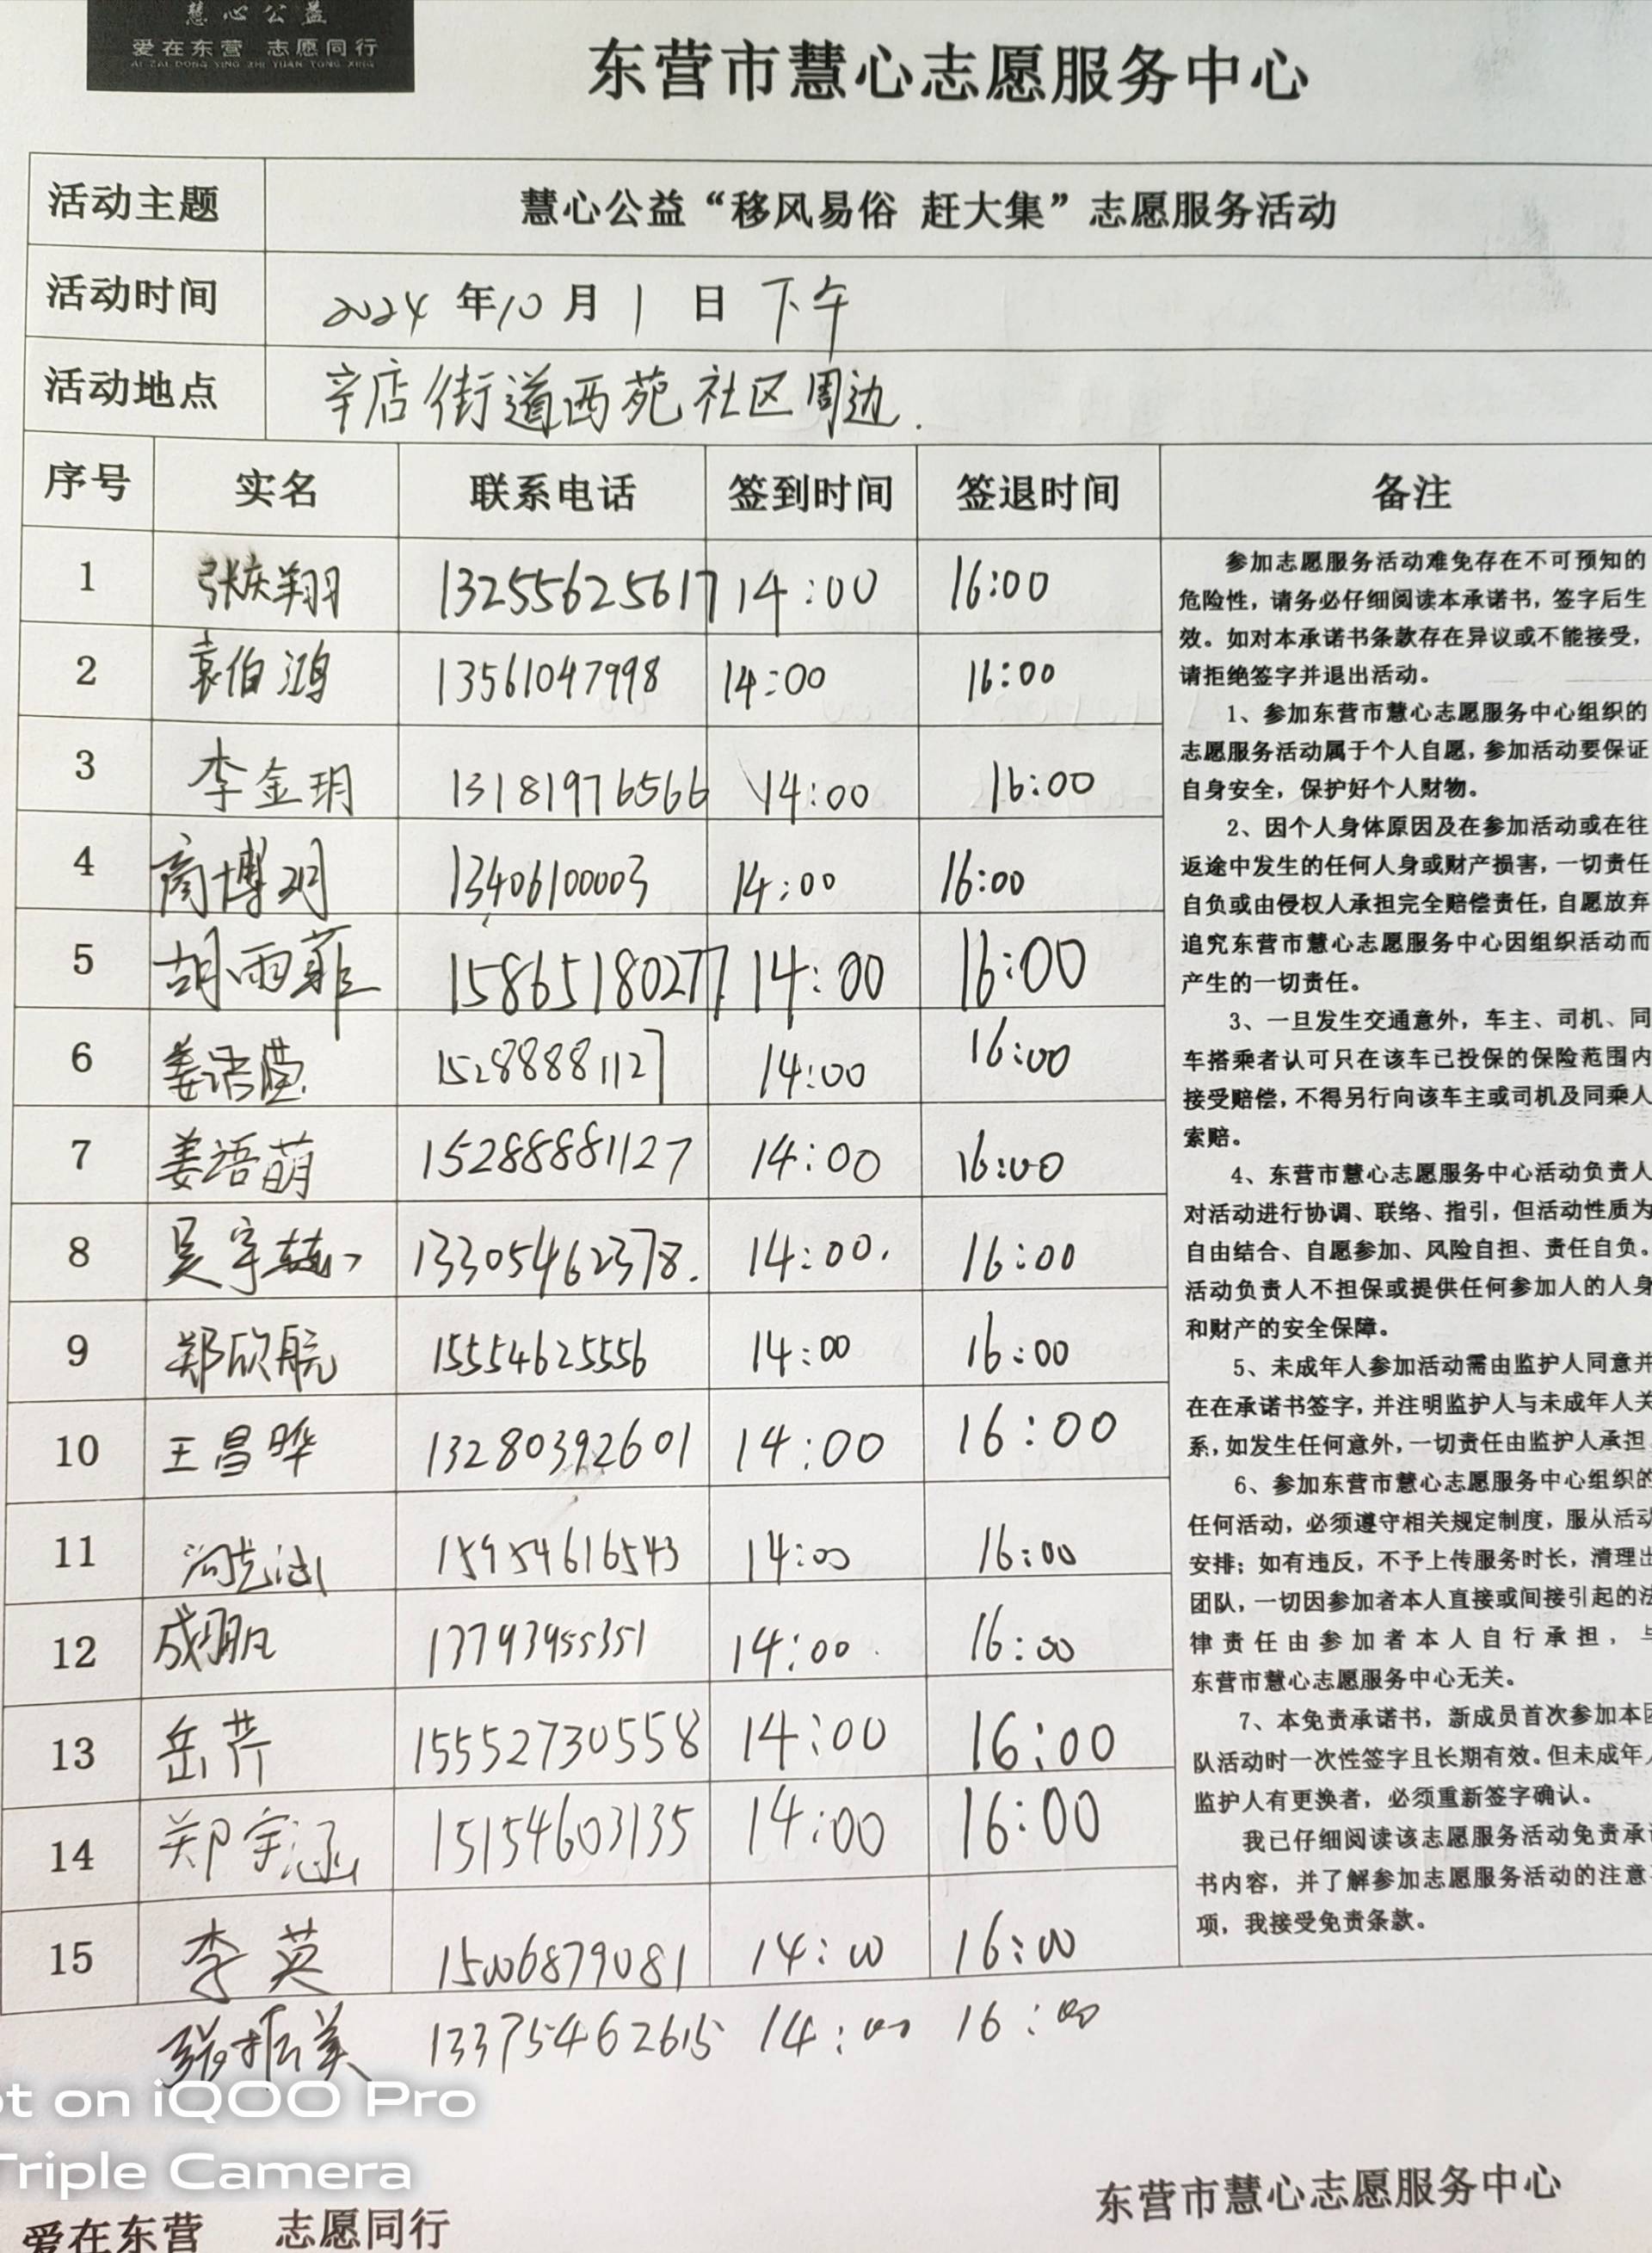 慧心公益
爱在东营 志愿同行
AI ZAI DONG YING ZHI YUAN TONG XING
东营市慧心志愿服务中心
活动主题 慧心公益“移风易俗 赶大集”志愿服务活动
活动时间 2024年10月1日 下午
活动地点 辛店街道西苑社区周边.
序号 实名 联系电话 签到时间 签退时间 备注
1 张庆翔 13255625617 14:00 16:00
2 袁伯鸿 13561047998 14:00 16:00
3 李金玥 13181976566 14:00 16:00
4 商博 13406100003 14:00 16:00
5 胡雨菲 15865180277 14:00 16:00
6 姜语 15288881127 14:00 16:00
7 姜语萌 15288881127 14:00 16:00
8 吴宇 13305462378. 14:00. 16:00
9 郑欣航 15554625556 14:00 16:00
10 王昌晔 13280392601 14:00 16:00
11 15954616543 14:00 16:00
12 成 13793955351 14:00 16:00
13 岳芹 15552730558 14:00 16:00
14 郑宇涵 15154603135 14:00 16:00
15 李英 15006879081 14:00 16:00
张振美 13375462615 14:00 16:00
参加志愿服务活动难免存在不可预知的
危险性，请务必仔细阅读本承诺书，签字后生
效。如对本承诺书条款存在异议或不能接受，
请拒绝签字并退出活动。
1、参加东营市慧心志愿服务中心组织的
志愿服务活动属于个人自愿，参加活动要保证
自身安全，保护好个人财物。
2、因个人身体原因及在参加活动或在往
返途中发生的任何人身或财产损害，一切责任
自负或由侵权人承担完全赔偿责任，自愿放弃
追究东营市慧心志愿服务中心因组织活动而
产生的一切责任。
3、一旦发生交通意外，车主、司机、同
车搭乘者认可只在该车已投保的保险范围内
接受赔偿，不得另行向该车主或司机及同乘人
索赔。
4、东营市慧心志愿服务中心活动负责人
对活动进行协调、联络、指引，但活动性质为
自由结合、自愿参加、风险自担、责任自负。
活动负责人不担保或提供任何参加人的人身
和财产的安全保障。
5、未成年人参加活动需由监护人同意并
在在承诺书签字，并注明监护人与未成年人关
系，如发生任何意外，一切责任由监护人承担
6、参加东营市慧心志愿服务中心组织的
任何活动，必须遵守相关规定制度，服从活动
安排；如有违反，不予上传服务时长，清理出
团队，一切因参加者本人直接或间接引起的法
律责任由参加者本人自行承担，与
东营市慧心志愿服务中心无关。
7、本免责承诺书，新成员首次参加本团
队活动时一次性签字且长期有效。但未成年人
监护人有更换者，必须重新签字确认。
我已仔细阅读该志愿服务活动免责承诺
书内容，并了解参加志愿服务活动的注意事
项，我接受免责条款。
ot on iQOO Pro
Triple Camera
东营市慧心志愿服务中心
爱在东营 志愿同行